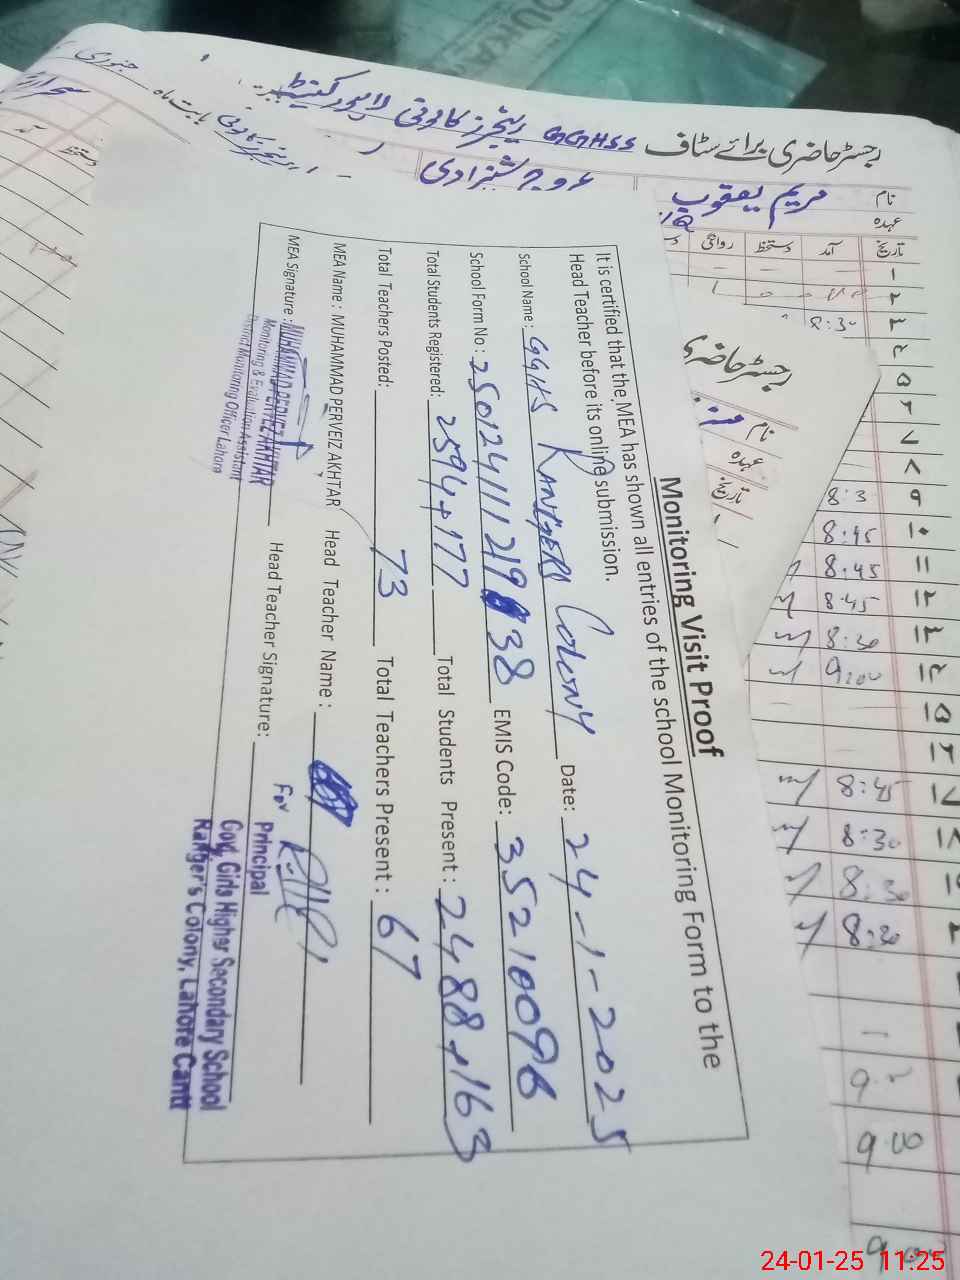 رجسٹر حاضری برائے سٹاف GGHSS رینجرز کالونی لاہور کینٹ
بابت ماہ جنوری
نام مریم یعقوب
عروج شہزادی
عہدہ
تاریخ آمد دستخط روانگی
۱
۲
۳ 8:30
۴
۵
۶
۷
۸
۹ 8:3
۱۰ 8:45
۱۱ 8:45
۱۲ 8:45
۱۳ 8:30
۱۴ 9:00
۱۵
۱۶
۱۷ 8:45
۱۸ 8:30
8:30
8:30
9:00
رجسٹر حاضری
نام
عہدہ
تاریخ
Monitoring Visit Proof
It is certified that the MEA has shown all entries of the school Monitoring Form to the
Head Teacher before its online submission.
School Name: GGHS RANGERS COLONY Date: 24-1-2025
School Form No: 250124111121938 EMIS Code: 35210096
Total Students Registered: 2594+177 Total Students Present: 2488+163
Total Teachers Posted: 73 Total Teachers Present: 67
MEA Name: MUHAMMAD PERVEIZ AKHTAR Head Teacher Name:
MEA Signature: Head Teacher Signature:
MUHAMMAD PERVEIZ AKHTAR
Monitoring & Evaluation Assistant
District Monitoring Officer Lahore
For
Principal
Govt. Girls Higher Secondary School
Ranger's Colony, Lahore Cantt
24-01-25 11:25